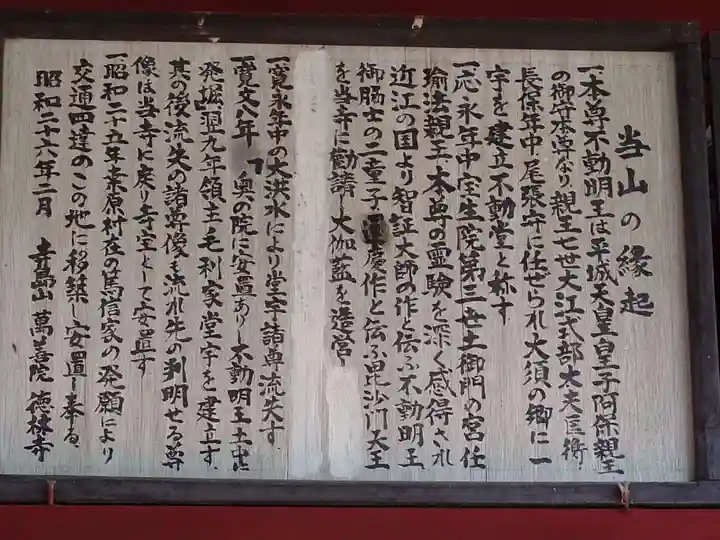 当山の縁起
一本尊不動明王は平城天皇皇子阿保親王
の御守本尊なり親王七世大江式部太夫匡衡
長保年中尾張守に任ぜられ大須の郷に一
宇を建立不動堂と称す
一応永年中宝生院第三世土御門の宮任
瑜法親王本尊の霊験を深く感得され
近江の国より智証大師の作と伝ふ不動明王
御脇士の二童子 運慶作と伝ふ毘沙門天王
を当寺に勧請し大伽藍を造営し
一寛永年中の大洪水により堂宇諸尊流失す
一寛文八年「奥の院に安置あり」不動明王土中に
発掘翌九年領主毛利家堂宇を建立す
其の後流失の諸尊像も流れ先の判明せる尊
像は当寺に戻り寺宝として安置す
一昭和二十五年桑原村在の篤信家の発願により
交通四達のこの地に移築し安置し奉る
昭和二十六年二月 寺島山 萬善院 徳林寺